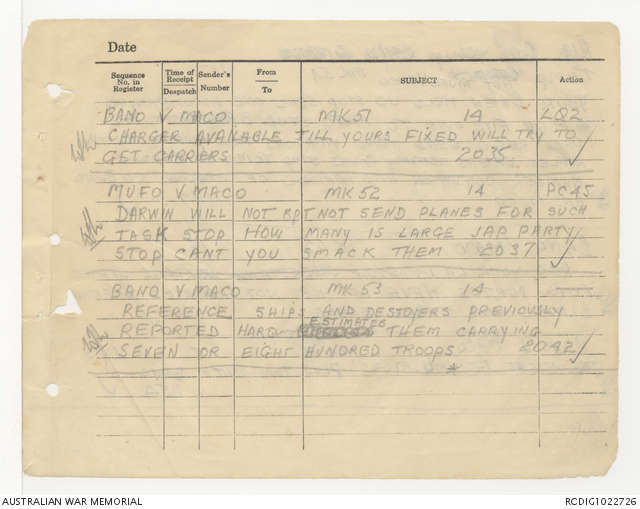 Date
Sequence No. in Register
Time of Receipt
Despatch
Sender's Number
From
To
SUBJECT
Action
BANO V MACO MK51 14 LQ2
CHARGER AVAILABLE TILL YOURS FIXED WILL TRY TO
GET CARRIERS 2035
MUFO V MACO MK52 14 PC45
DARWIN WILL NOT RPT NOT SEND PLANES FOR SUCH
TASK STOP HOW MANY IS LARGE JAP PARTY
STOP CANT YOU SMACK THEM 2037
BANO V MACO MK53 14
REFERENCE SHIPS AND DESTOYERS PREVIOUSLY
REPORTED ESTIMATES THEM CARRYING
SEVEN OR EIGHT HUNDRED TROOPS 2042
*
AUSTRALIAN WAR MEMORIAL
RCDIG1022726